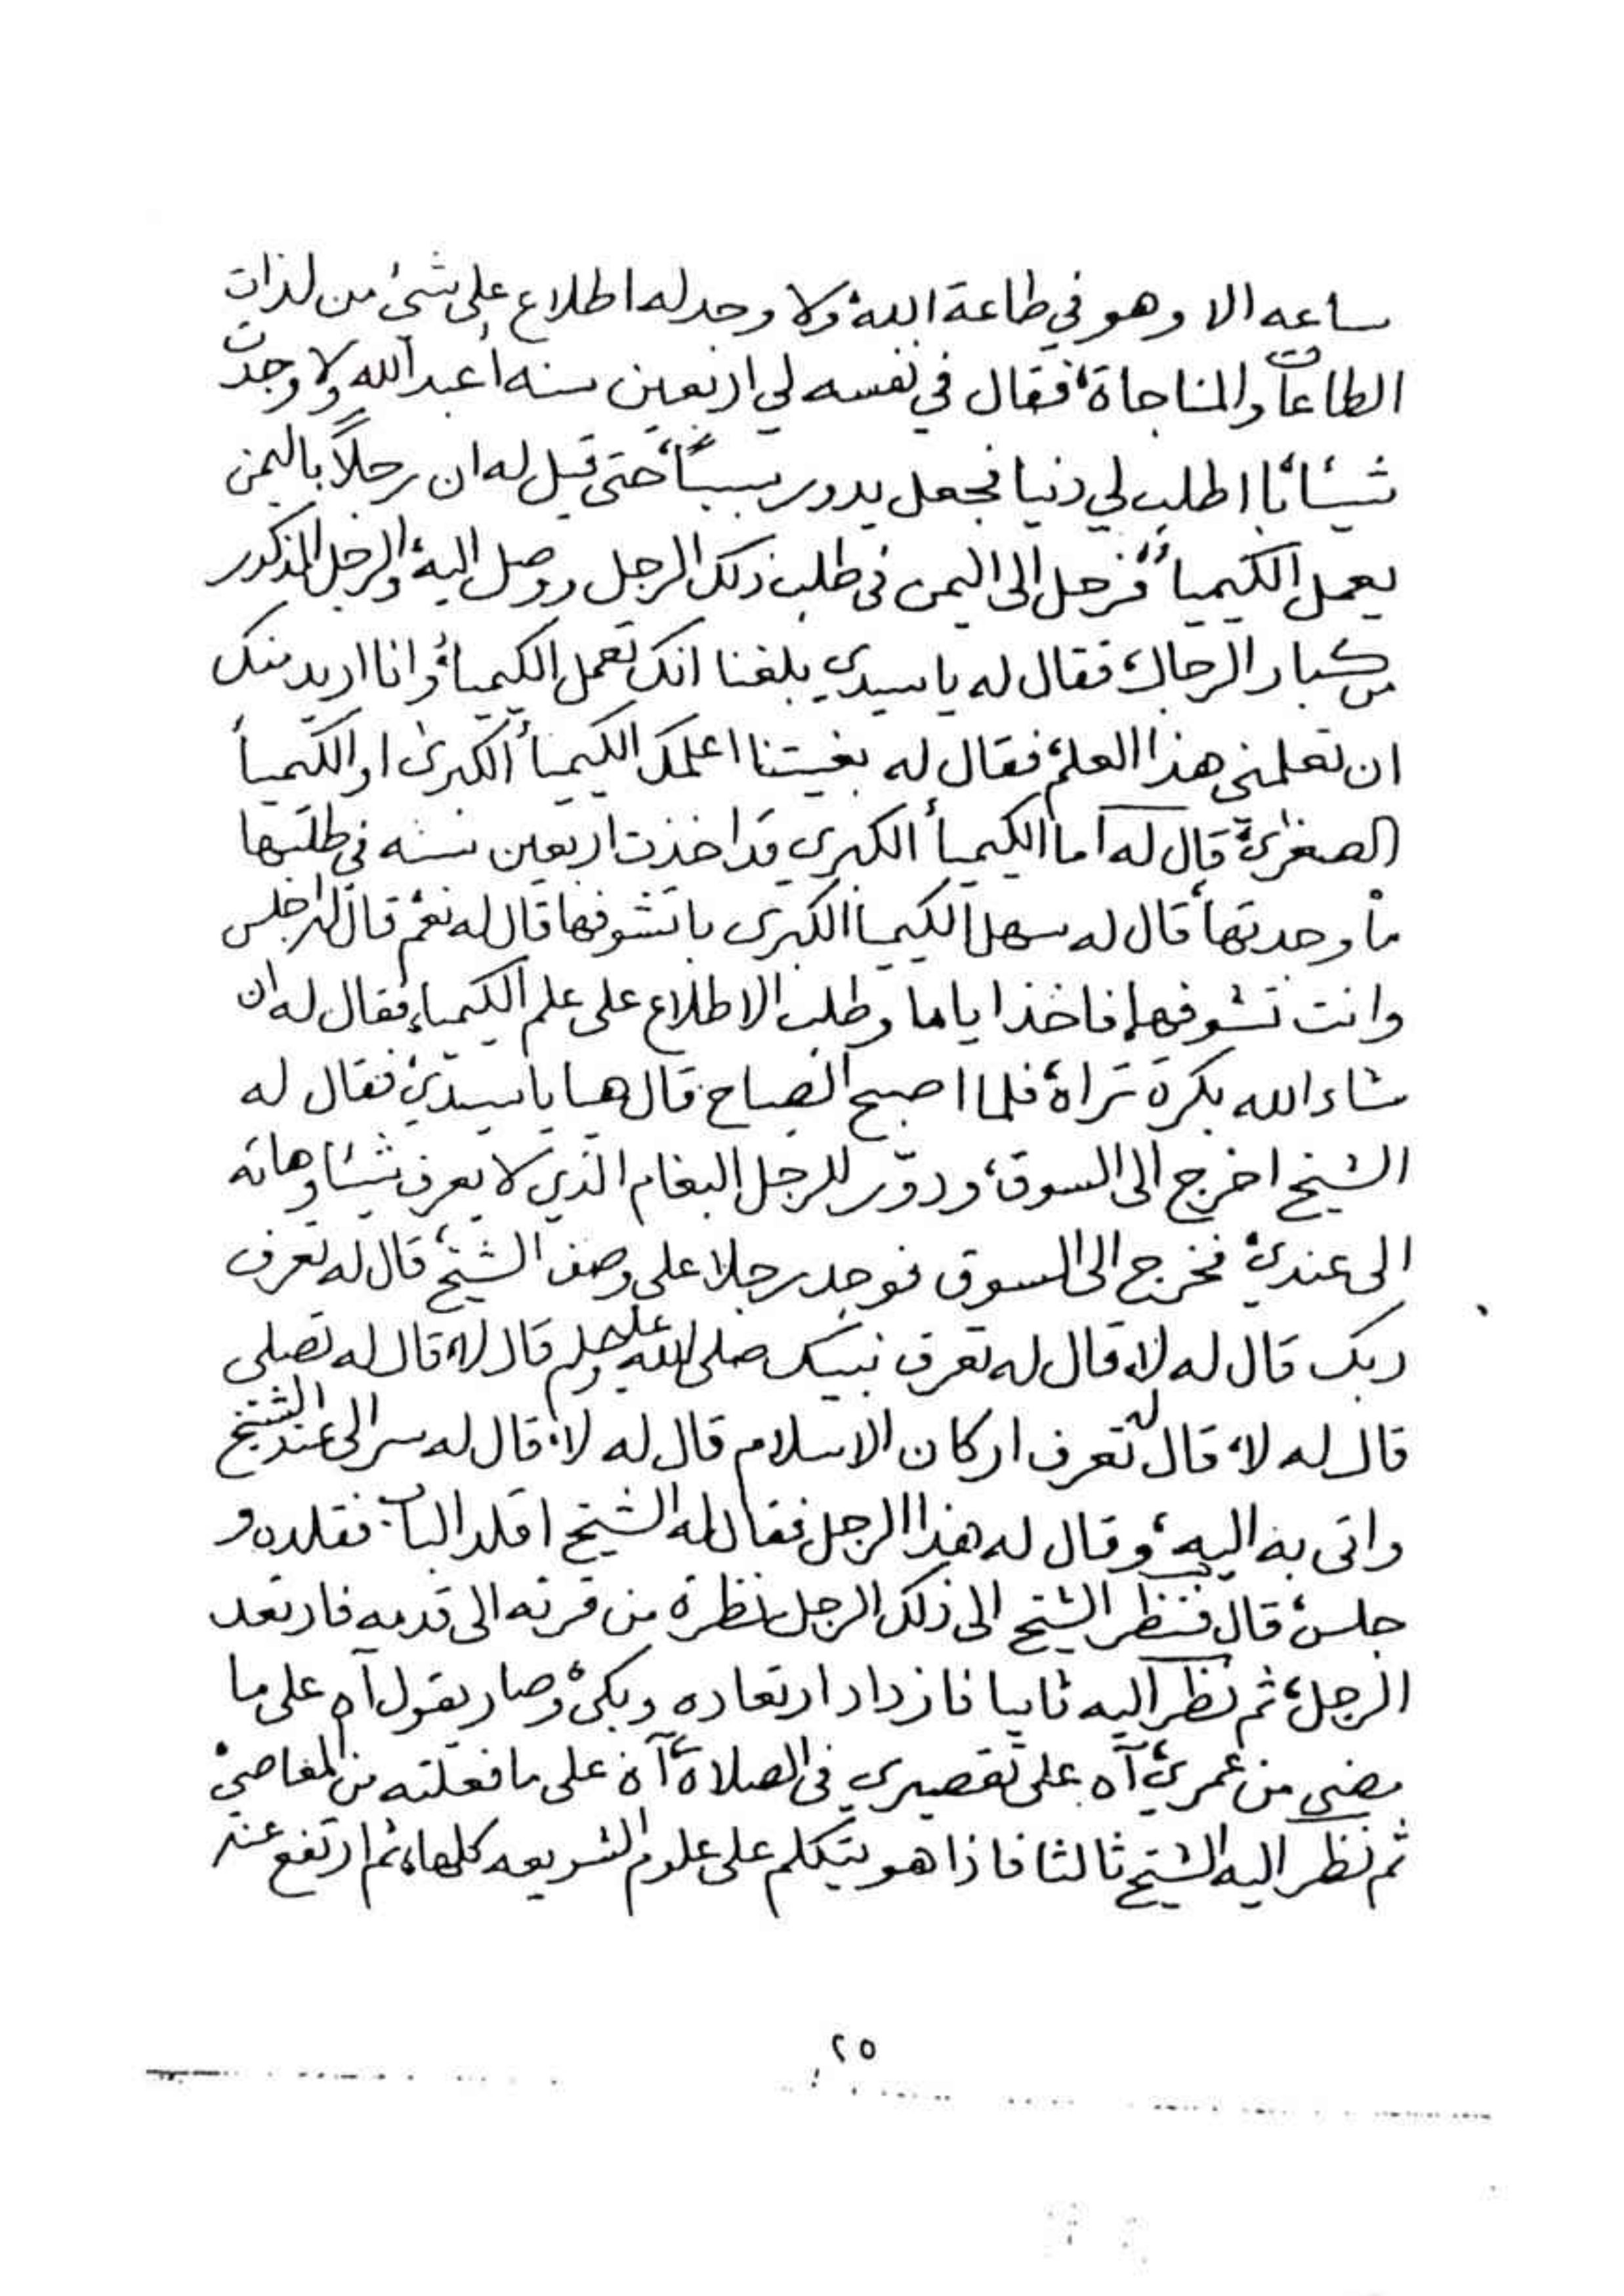 ساعه الا وهو في طاعة الله، ولا وجد له اطلاع على شئ من لذات
الطاعات والمناجاة، فقال في نفسه لي اربعين سنه أعبد الله ولا وجدت
شيئاً، با اطلب لي دنيا فجعل يدور سبباً، حتى قيل له ان رجلاً باليمن
يعمل الكيمياً، فرحل الى اليمن في طلب ذلك الرجل ووصل اليه، والرجل المذكور
من كبار الرجال، فقال له يا سيدي بلغنا انك تعمل الكيمياً، وانا اريد منك
ان تعلمني هذا العلم، فقال له بغيتنا اعلمك الكيمياً الكبرى او الكيمياً
الصغرى، قال له اما الكيمياً الكبرى قد اخذت اربعين سنه في طلبها
ما وجدتها، قال له سهل الكيميا الكبرى با تشوفها قال له نعم، قال له اجلس
وانت تشوفها، فاخذ اياما وطلب الاطلاع على علم الكيمياء، فقال له ان
شاء الله بكرة تراه، فلما اصبح الصباح قال هيا يا سيدي، فقال له
الشيخ اخرج الى السوق، ودوّر للرجل البغام الذي لا يعرف شيئا وهاته
الى عندي، فخرج الى السوق فوجد رجلا على وصف الشيخ، قال له تعرف
ربك قال له لا، قال له تعرف نبيك صلى الله عليه وسلم قال لا، قال له تصلي
قال له لا، قال له تعرف اركان الاسلام قال له لا، قال له سر الى عند الشيخ
واتى به اليه، وقال له هذا الرجل فقال له الشيخ اقلد الباب، فقلده و
جلس، قال فنظر الشيخ الى ذلك الرجل نظرة من قرنه الى قدميه فارتعد
الرجل، ثم نظر اليه ثانيا فازداد ارتعاده وبكى، وصار يقول آه على ما
مضى من عمري، آه على تقصيري في الصلاة، آه على ما فعلته من المعاصي،
ثم نظر اليه الشيخ ثالثا فاذا هو يتكلم على علوم الشريعه كلها، ثم ارتفع عند
٢٥